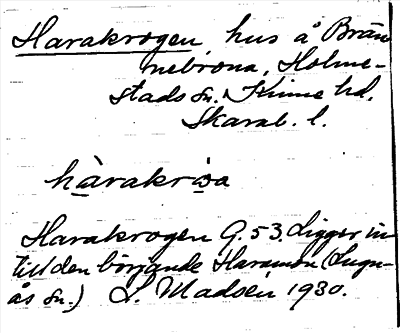 Harakrogen, hus å Brän-
nebrona, Holme-
stads sn. Kinne hd.
Skarab. l.
hàrakrωa
Harakrogen G. 53. Ligger in-
till den började Haramon (Lugn-
ås sn.) L. Madsén 1930.